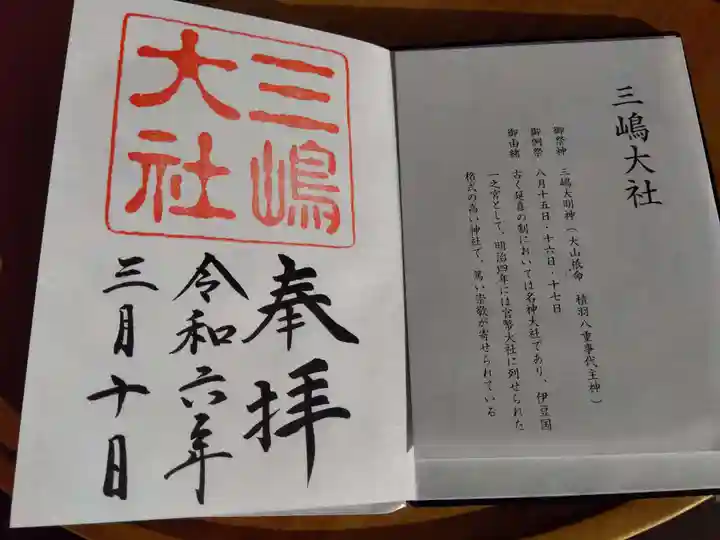 三嶋大社
御祭神 三嶋大明神(大山祇命 積羽八重事代主神)
御例祭 八月十五日・十六日・十七日
御由緒 古く延喜の制においては名神大社であり、伊豆国
一之宮として、明治四年には官幣大社に列せられた
格式の高い神社で、篤い崇敬が寄せられている
三嶋
大社
奉拝
令和六年
三月十日